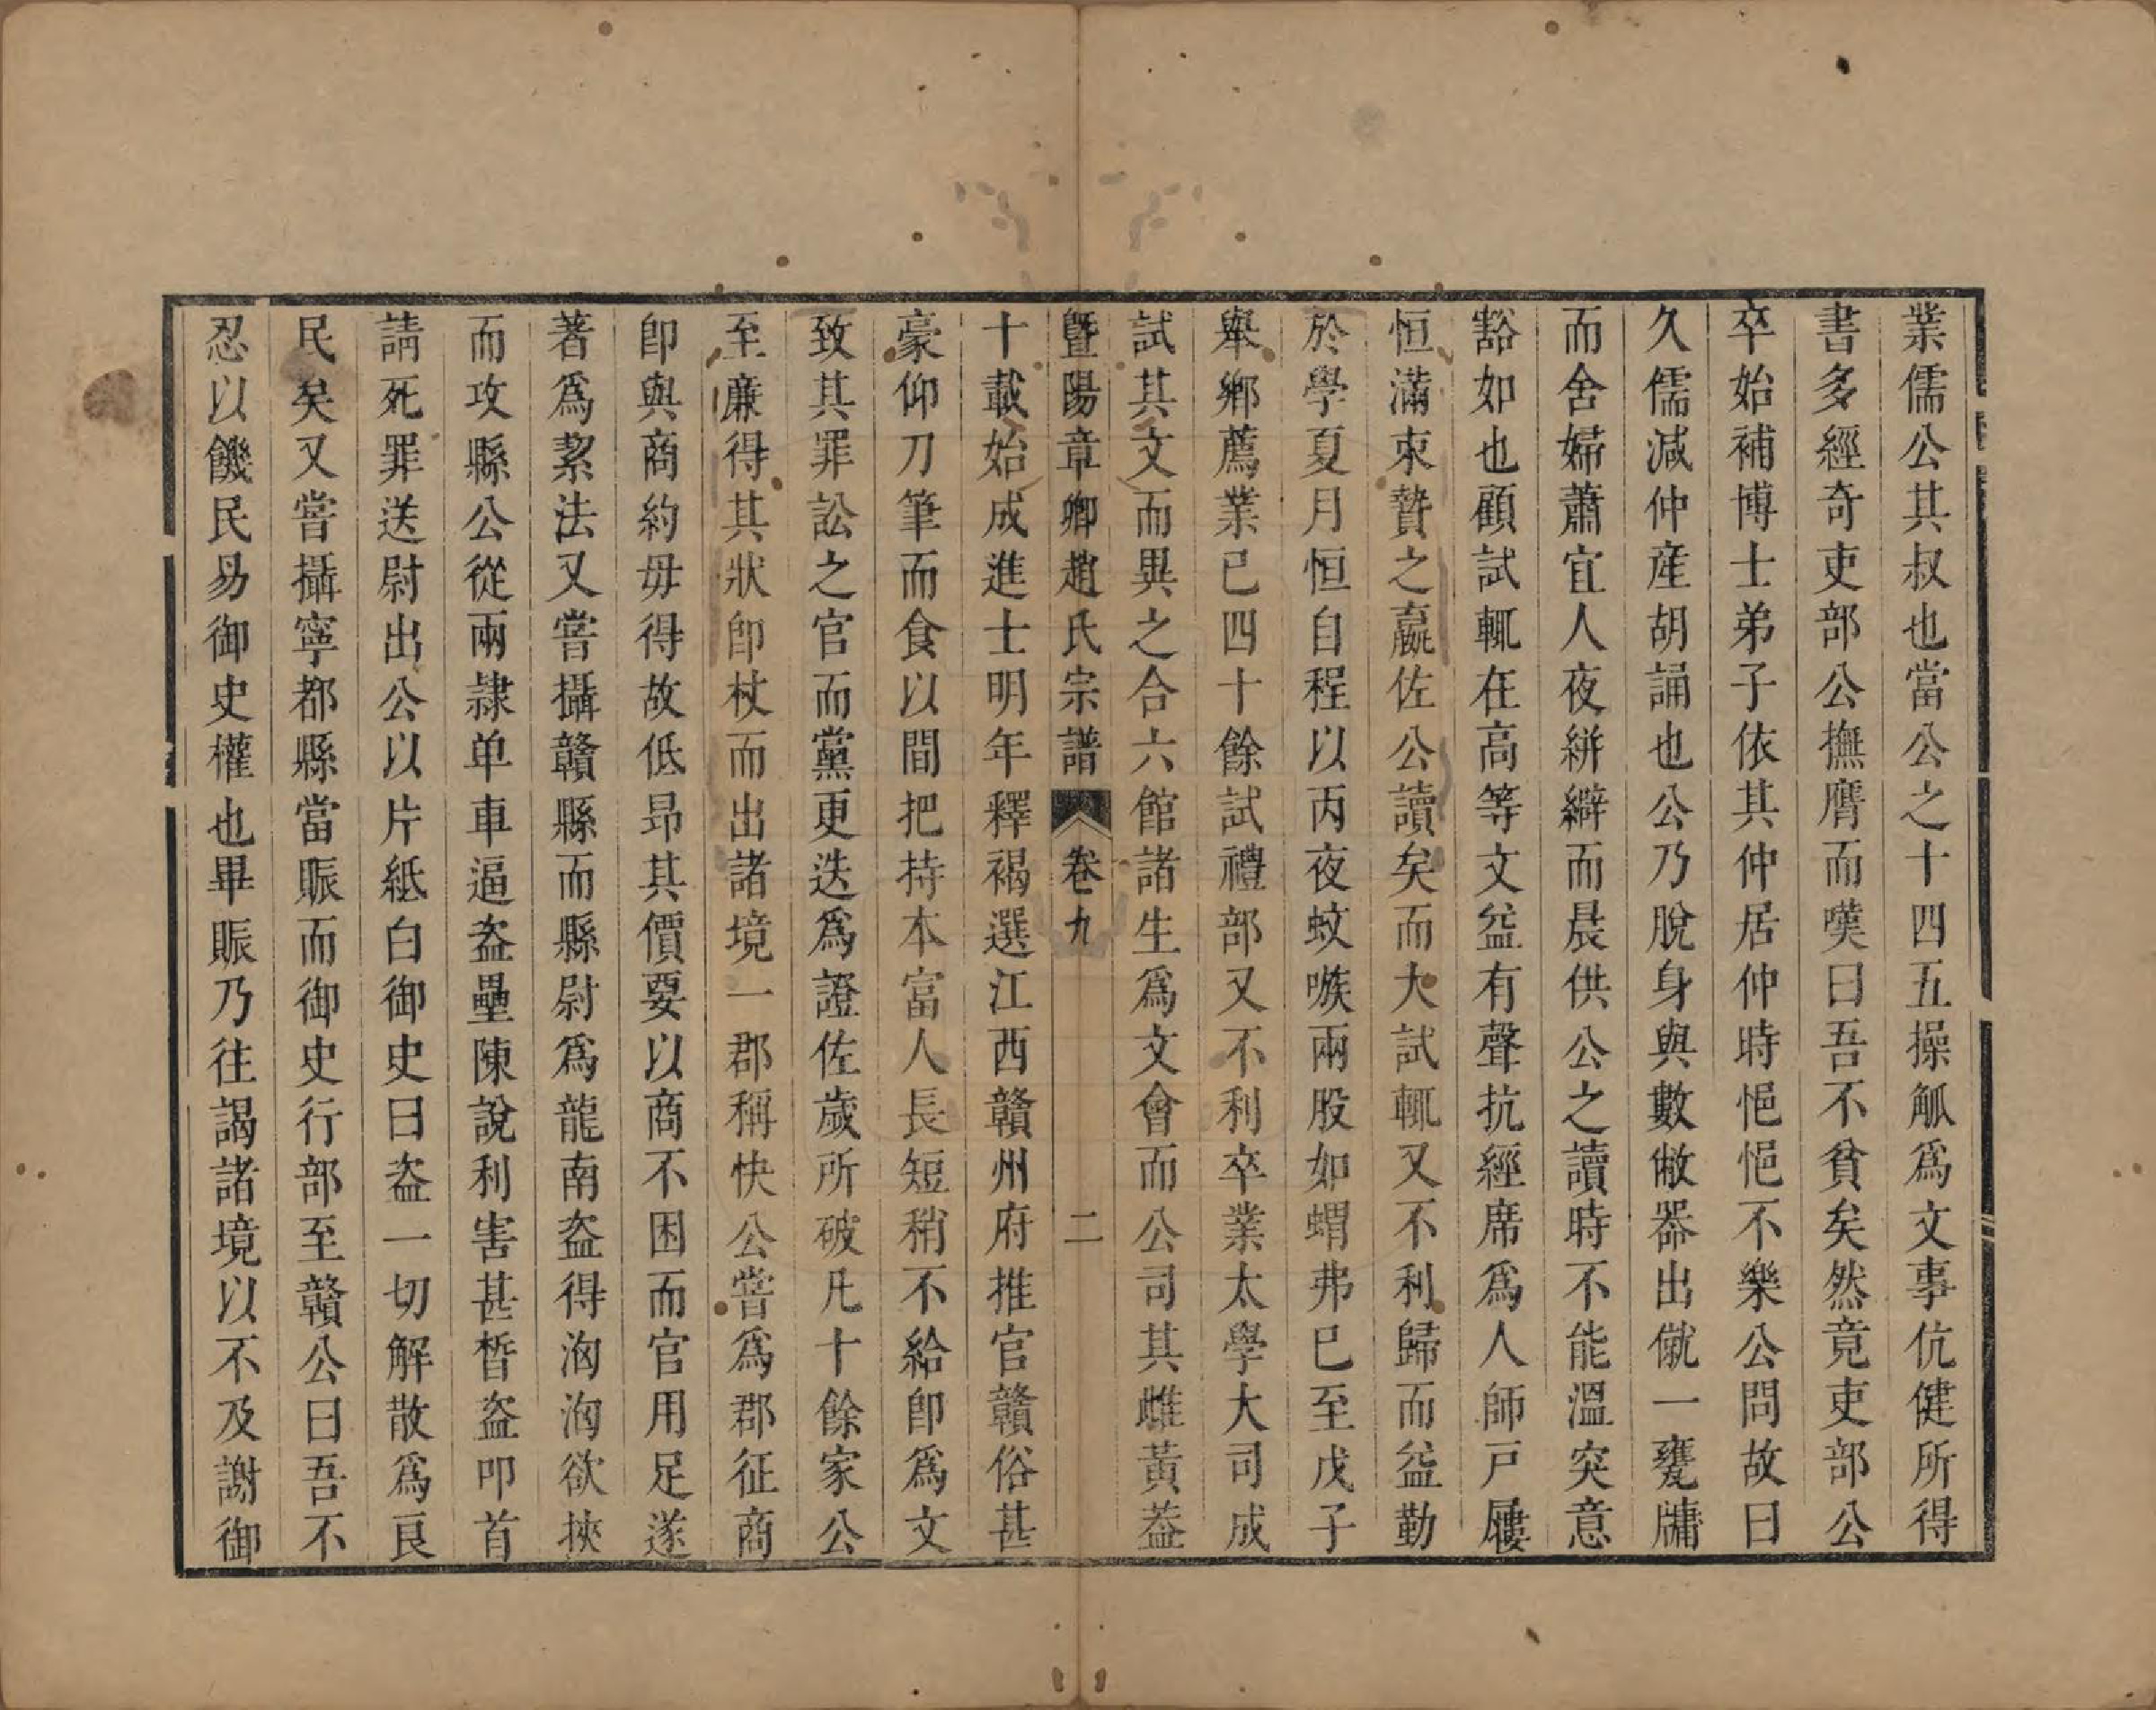 業儒公其叔也當公之十四五操觚爲文事伉健所得
書多經奇吏部公撫膺而嘆曰吾不貧矣然竟吏部公
卒始補博士弟子依其仲居仲時悒悒不樂公問故曰
久儒減仲産胡誦也公乃脫身與數敝器出僦一甕牖
而舍婦蕭宜人夜絣繲而晨供公之讀時不能溫突意
豁如也顧試輒在高等文益有聲抗經席爲人師戸屨
恒滿束贄之羸佐公讀矣而大試輒又不利歸而益勤
於學夏月恒自程以丙夜蚊嘬兩股如蝟弗已至戊子
舉鄉薦業已四十餘試禮部又不利卒業太學大司成
試其文而異之合六館諸生爲文會而公司其雌黃葢
暨陽章卿趙氏宗譜 卷九 二
十載始成進士明年釋褐選江西贛州府推官贛俗甚
豪仰刀筆而食以間把持本富人長短稍不給卽爲文
致其罪訟之官而黨更迭爲證佐歲所破凡十餘家公
至廉得其狀卽杖而出諸境一郡稱快公嘗爲郡征商
卽與商約毋得故低昂其價要以商不困而官用足遂
著爲絜法又嘗攝贛縣而縣尉爲龍南盜得洶洶欲挾
而攻縣公從兩隷单車逼盜壘陳說利害甚晳盜叩首
請死罪送尉出公以片紙白御史曰盜一切解散爲良
民矣又嘗攝寧都縣當賑而御史行部至贛公曰吾不
忍以饑民易御史權也畢賑乃往謁諸境以不及謝御